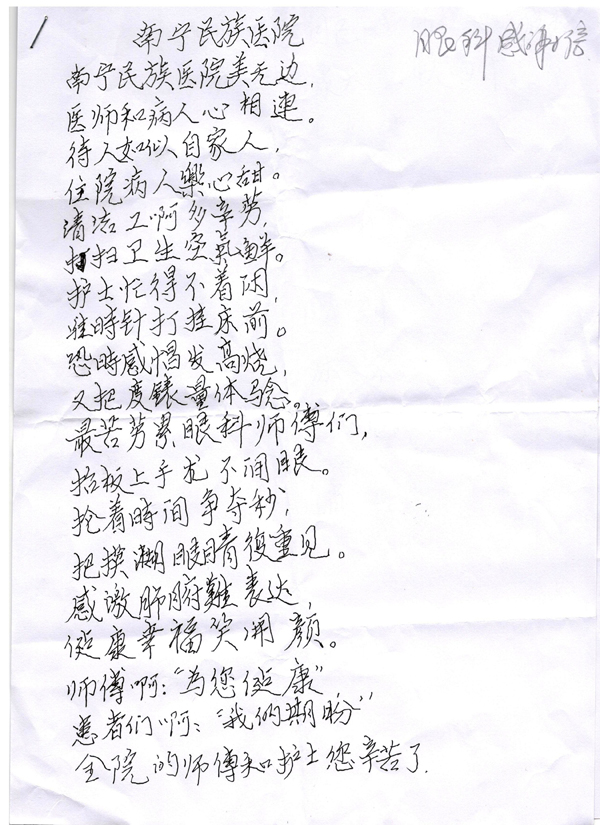 眼科感谢信
南宁民族医院
南宁民族医院美无边,
医师和病人心相連。
待人如似自家人,
住院病人樂心甜。
清洁工啊多辛劳,
打扫卫生空氣鲜。
护士忙得不着闲,
時针打挂床前。
恐時感惜发高烧,
又把度錶量体验。
最苦劳累眼科师傅们,
上手尤不闭眼。
抢着時间争夺秒,
把摸湖眼睛復重见。
感激肺腑難表达,
健康幸福笑開颜。
师傅啊:“为您健康”
患者们啊:“我们期盼”
全院的师傅和护士您辛苦了.